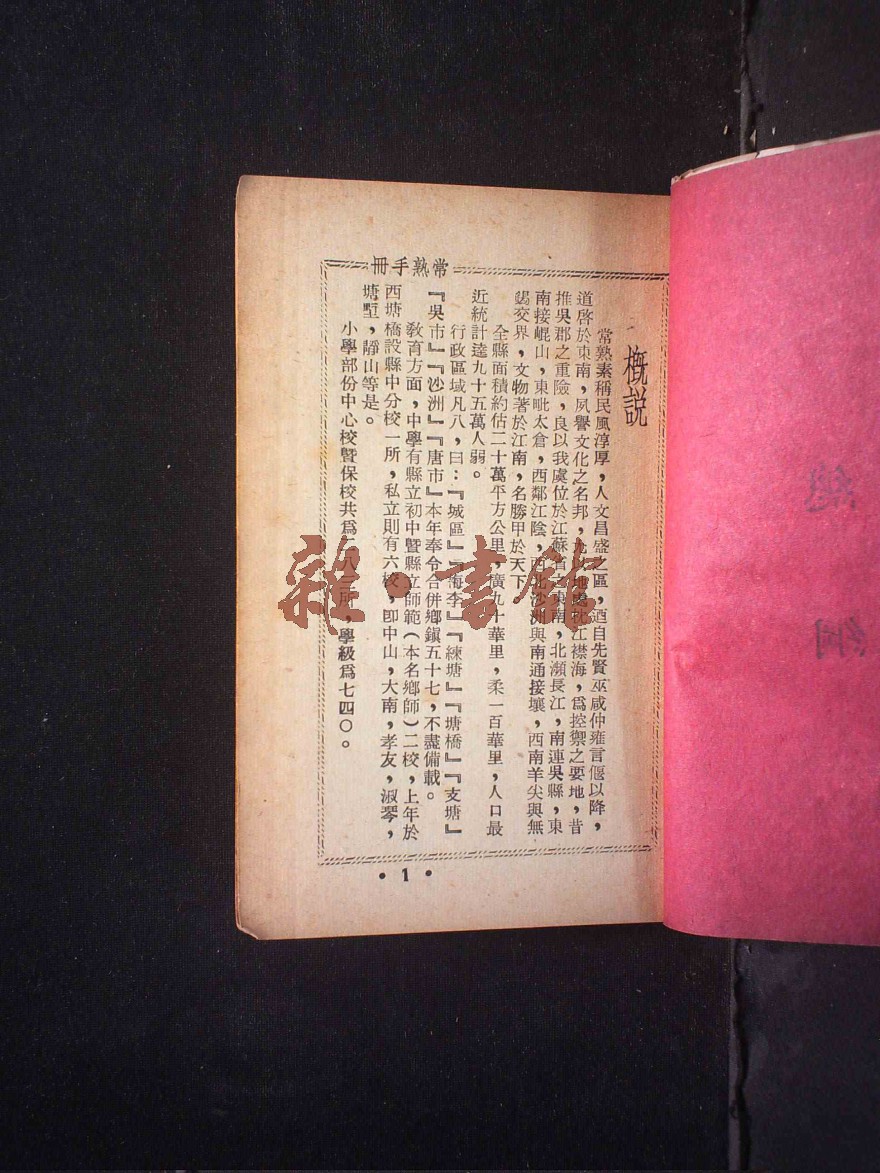 常熟手冊
概説
常熟素稱民風淳厚，人文昌盛之區，迺自先賢巫咸仲雍言偃以降，
道啓於東南，夙譽文化之名邦，尤以地處枕江襟海，爲控禦之要地，昔
推吳郡之重險，良以我虞位於江蘇省之東南，北瀕長江，南連吳縣，東
南接崐山，東毗太倉，西鄰江陰，西北沙洲與南通接壤，西南羊尖與無
錫交界，文物著於江南，名勝甲於天下
全縣面積約估二十萬平方公里，廣九十華里，柔一百華里，人口最
近統計達九十五萬人弱。
行政區域凡八，曰：『城區』『海李』『練塘』『塘橋』『支塘』
『吳市』『沙洲』『唐市』本年奉令合併鄉鎭五十七，不盡備載。
敎育方面，中學有縣立初中暨縣立師範（本名鄉師）二校，上年於
西塘橋設縣中分校一所，私立則有六校，卽中山，大南，孝友，淑琴，
塘墅，靜山等是。
小學部份中心校暨保校共爲二八三所，學級爲七四〇。
•1•
雜·書館